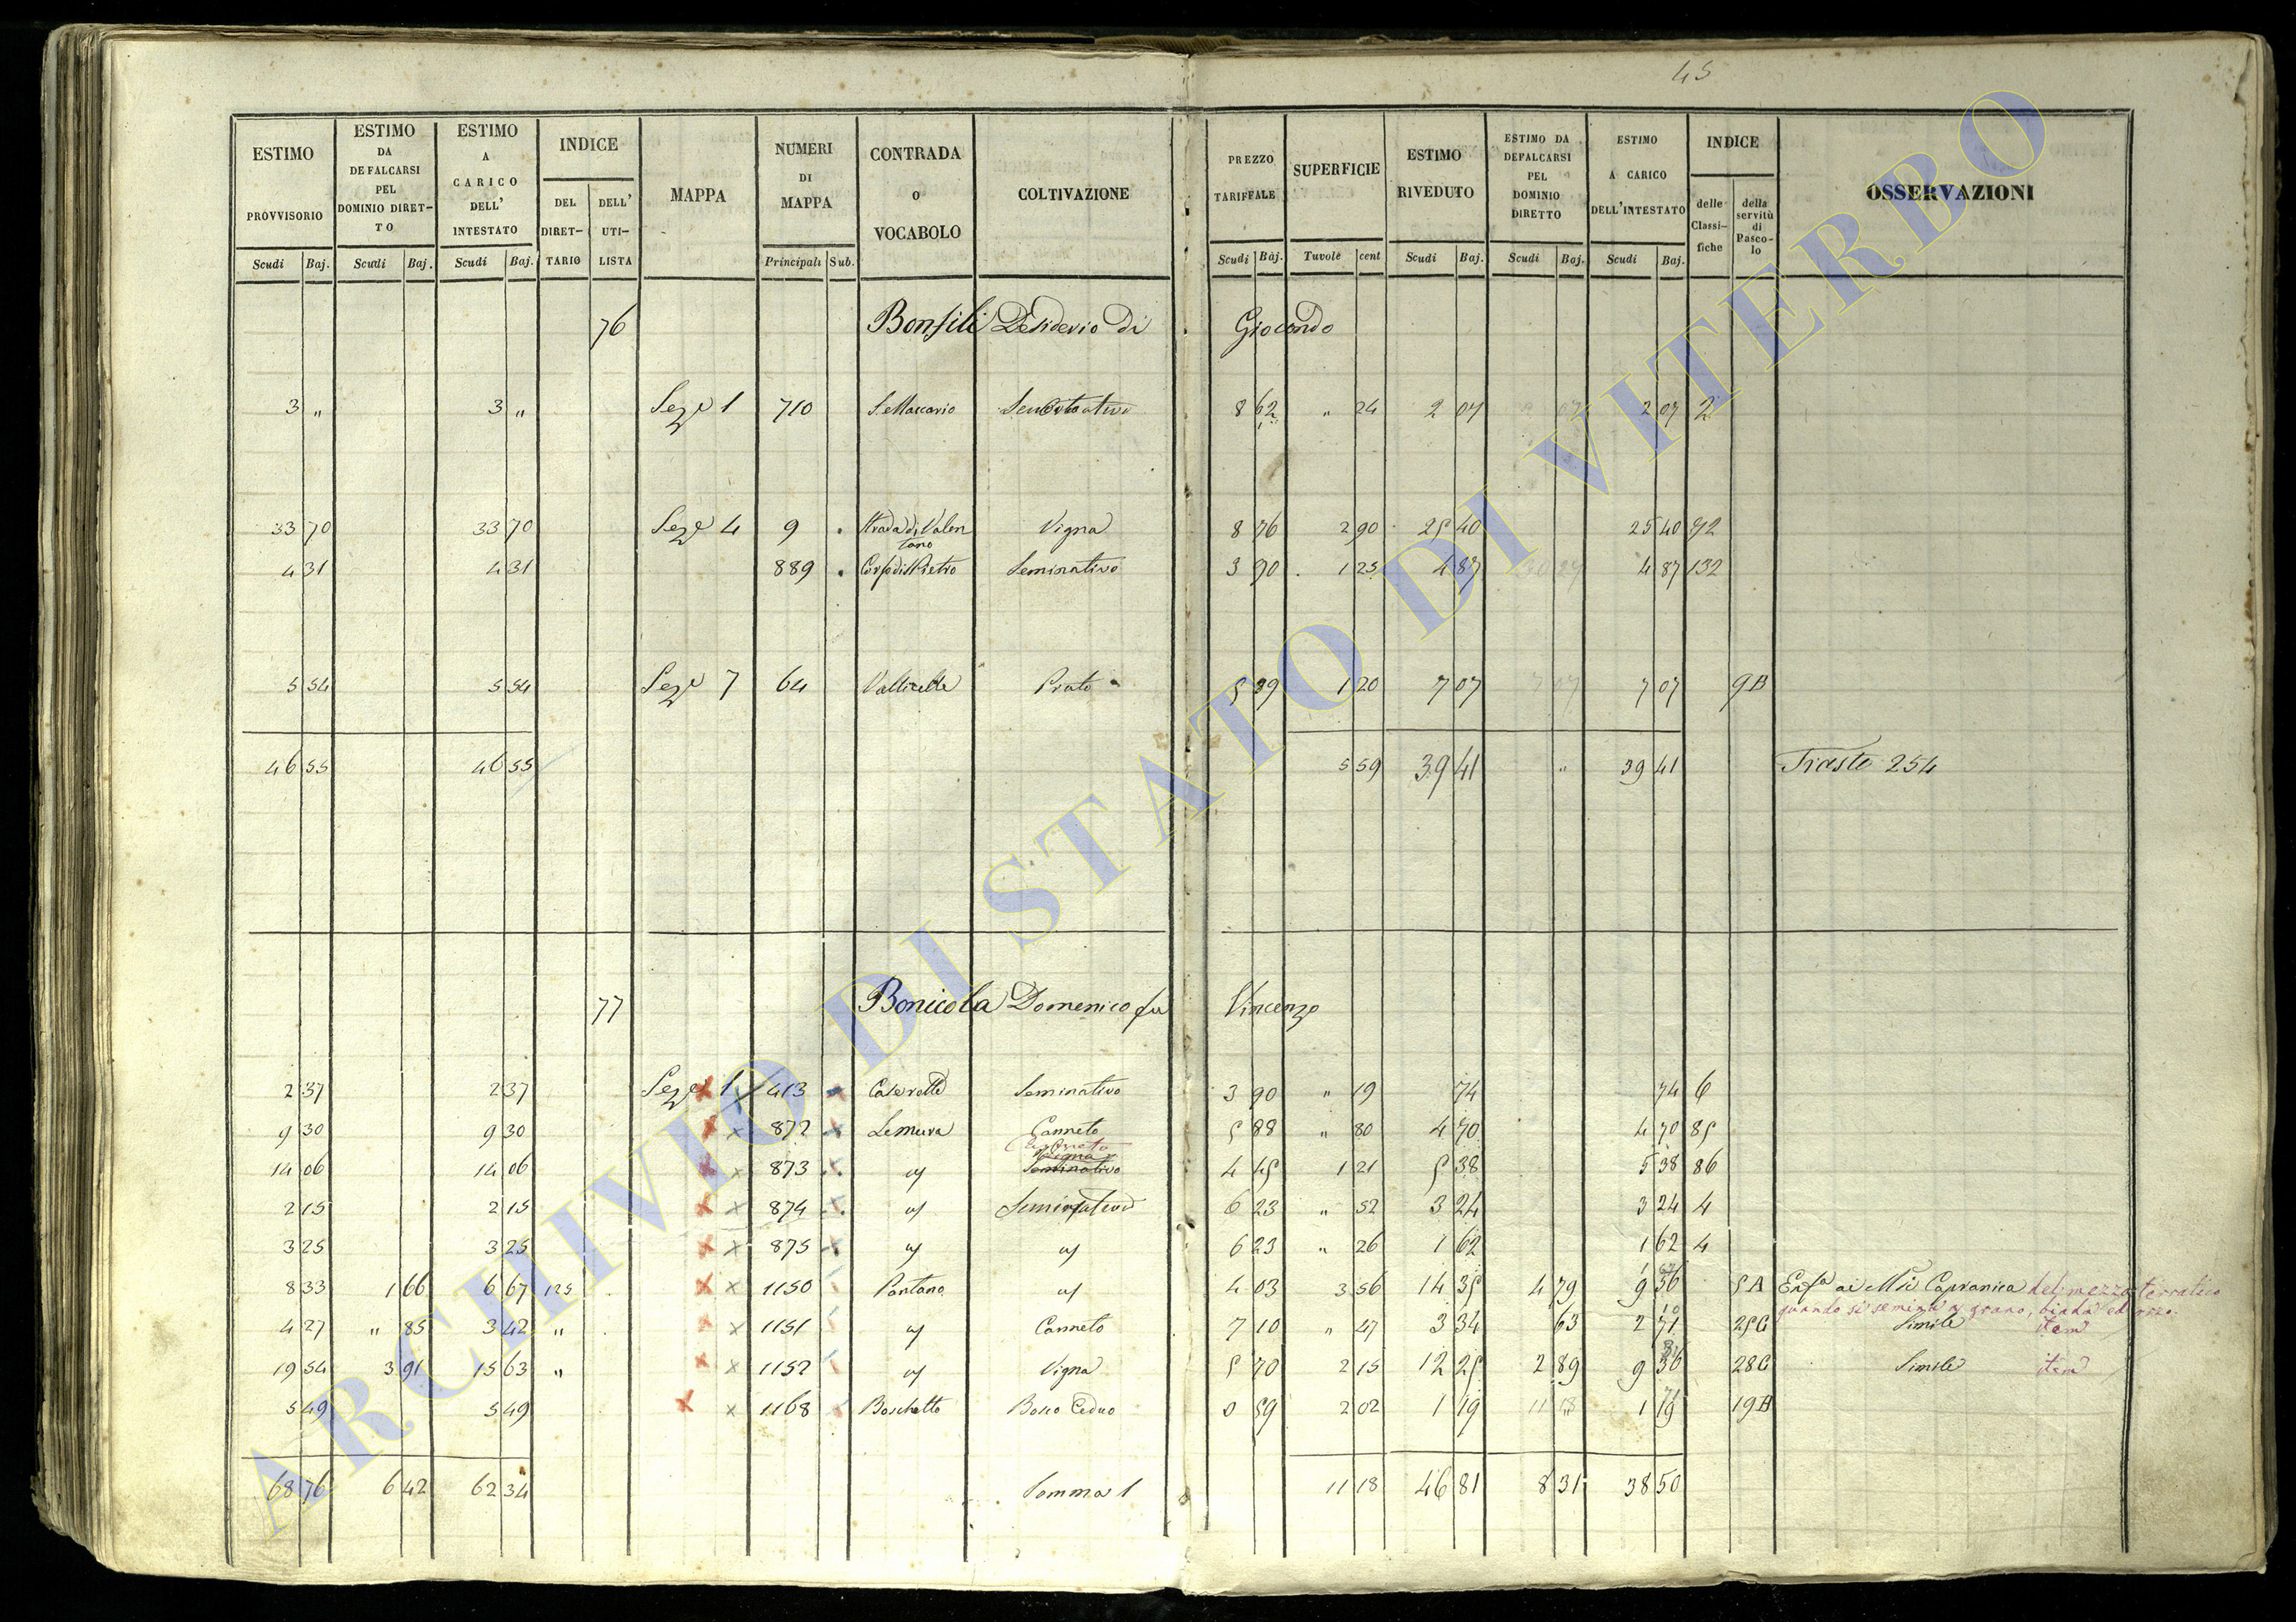 45
ESTIMO PROVVISORIO | ESTIMO DA DEFALCARSI PEL DOMINIO DIRET-TO | ESTIMO A CARICO DELL' INTESTATO | INDICE | MAPPA | NUMERI DI MAPPA | CONTRADA O VOCABOLO | COLTIVAZIONE | PREZZO TARIFFALE | SUPERFICIE | ESTIMO RIVEDUTO | ESTIMO DA DEFALCARSI PEL DOMINIO DIRETTO | ESTIMO A CARICO DELL'INTESTATO | INDICE | OSSERVAZIONI
DEL DIRET-TARIO | DELL' UTI-LISTA | delle Classi-fiche | della servitù di Pasco-lo
Scudi | Baj. | Scudi | Baj. | Scudi | Baj. | Principali | Sub. | Scudi | Baj. | Tavole | cent | Scudi | Baj. | Scudi | Baj. | Scudi | Baj.
76 Bonfili Desiderio di Giocondo
3 " | 3 " | Seze 1 | 710 | S. Maccario | Seminativo | 8 62 | " 24 | 2 07 | 2 07 | 2
33 70 | 33 70 | Seze 4 | 9 | Strada di Valentano | Vigna | 8 76 | 2 90 | 25 40 | 25 40 | 92
4 31 | 4 31 | 889 | | Seminativo | 3 90 | 1 25 | 4 87 | 4 87 | 132
5 54 | 5 54 | Seze 7 | 64 | Vallicelle | Prato | 5 89 | 1 20 | 7 07 | 7 07 | 9B
46 55 | 46 55 | 5 59 | 39 41 | " | 39 41 | Trasto 254
77 Bonicola Domenico fu Vincenzo
2 37 | 2 37 | Seze 1 | 413 | Caserotte | Seminativo | 3 90 | " 19 | 74 | 74 | 6
9 30 | 9 30 | 872 | Le mura | Canneto | 5 88 | " 80 | 4 70 | 4 70 | 85
Canneto
Vigna
14 06 | 14 06 | 873 | " | Seminativo | 4 45 | 1 21 | 5 38 | 5 38 | 86
2 15 | 2 15 | 874 | " | Seminativo | 6 23 | " 52 | 3 24 | 3 24 | 4
3 25 | 3 25 | 875 | " | " | 6 23 | " 26 | 1 62 | 1 62 | 4
8 33 | 1 66 | 6 67 | 125 | 1150 | Pantano | " | 4 03 | 3 56 | 14 35 | 4 79 | 9 56 | 5A | Enfa ai Mri Capranica del mezzo terratico
quando si semina a grano, biada ed orzo.
4 27 | " 85 | 3 42 | " | 1151 | " | Canneto | 7 10 | " 47 | 3 34 | 63 | 2 71 | 25C | Simile item
19 54 | 3 91 | 15 63 | " | 1152 | " | Vigna | 5 70 | 2 15 | 12 25 | 2 89 | 9 36 | 28C | Simile item
5 49 | 5 49 | 1168 | Boschetto | Bosco Ceduo | 0 59 | 2 02 | 1 19 | 1 19 | 19A
68 76 | 6 42 | 62 34 | Somma 1 | 11 18 | 46 81 | 8 31 | 38 50
ARCHIVIO DI STATO DI VITERBO